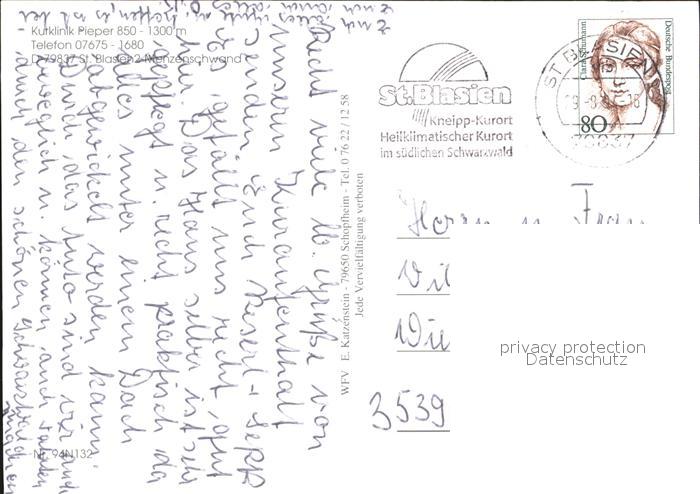 Kurklinik Pieper 850 - 1300 m
Telefon 07675 - 1680
D-79837 St. Blasien 2-Menzenschwand
Recht viele lb. Grüße von
unserem Kuraufenthalt
senden Euch Reserl + Sepp
Es gefällt uns recht gut
hier. Das Haus selber ist sehr
gepflegt u. recht praktisch da
alles unter einem Dach
abgewickelt werden kann.
Durch das Auto sind wir auch
beweglich u. können auch
durch den schönen Schwarzwald
Nr. 94N132
WFV E. Katzenstein - 79650 Schopfheim - Tel. 0 76 22 / 12 58
Jede Vervielfältigung verboten
St. Blasien
Kneipp-Kurort
Heilklimatischer Kurort
im südlichen Schwarzwald
ST BLASIEN
79837
Clara Schumann
Deutsche Bundespost
80
Herrn u. Frau
3539
privacy protection
Datenschutz